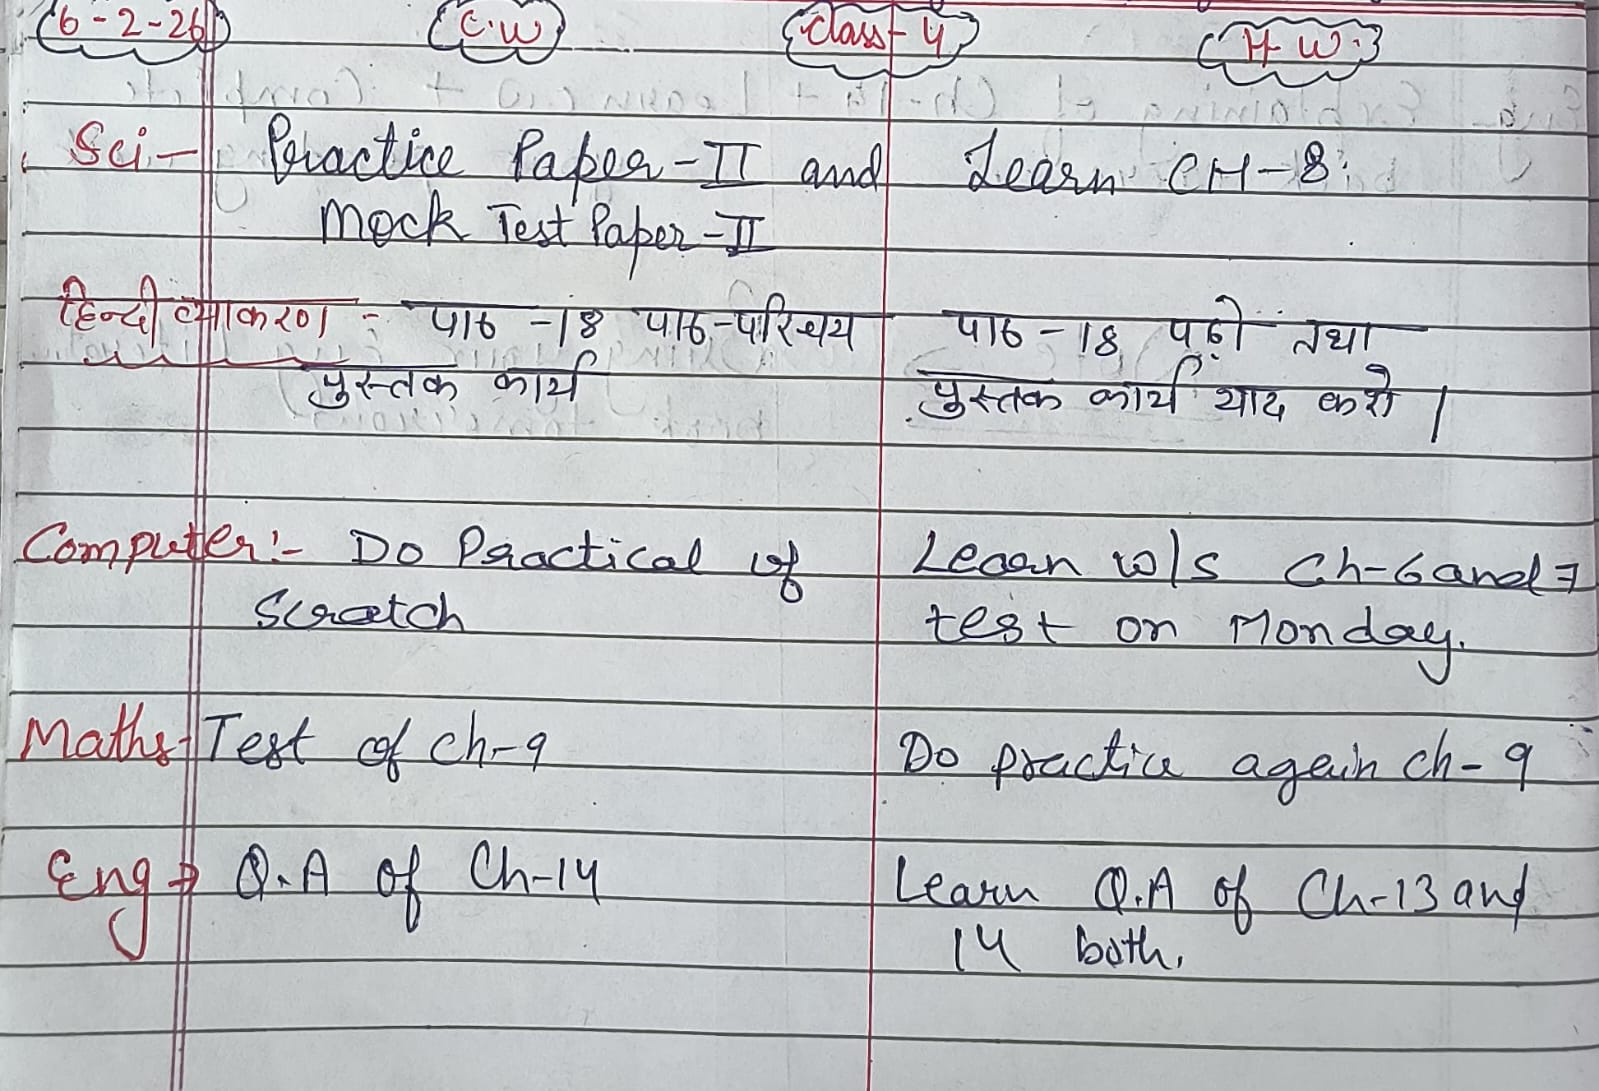 6-2-26 C.W Class-4 H.W.
Sci- Practice Paper-II and Learn CH-8.
Mock Test Paper-II
हिन्दी व्याकरण - पाठ -18 पाठ-परिचय पाठ-18 पढ़ो तथा
पुस्तक कार्य पुस्तक कार्य याद करो।
Computer:- Do Practical of Learn w/s Ch-6 and 7
Scratch test on Monday.
Maths- Test of ch-9 Do practice again ch-9
Eng⇒ Q.A of Ch-14 Learn Q.A of Ch-13 and
14 both.